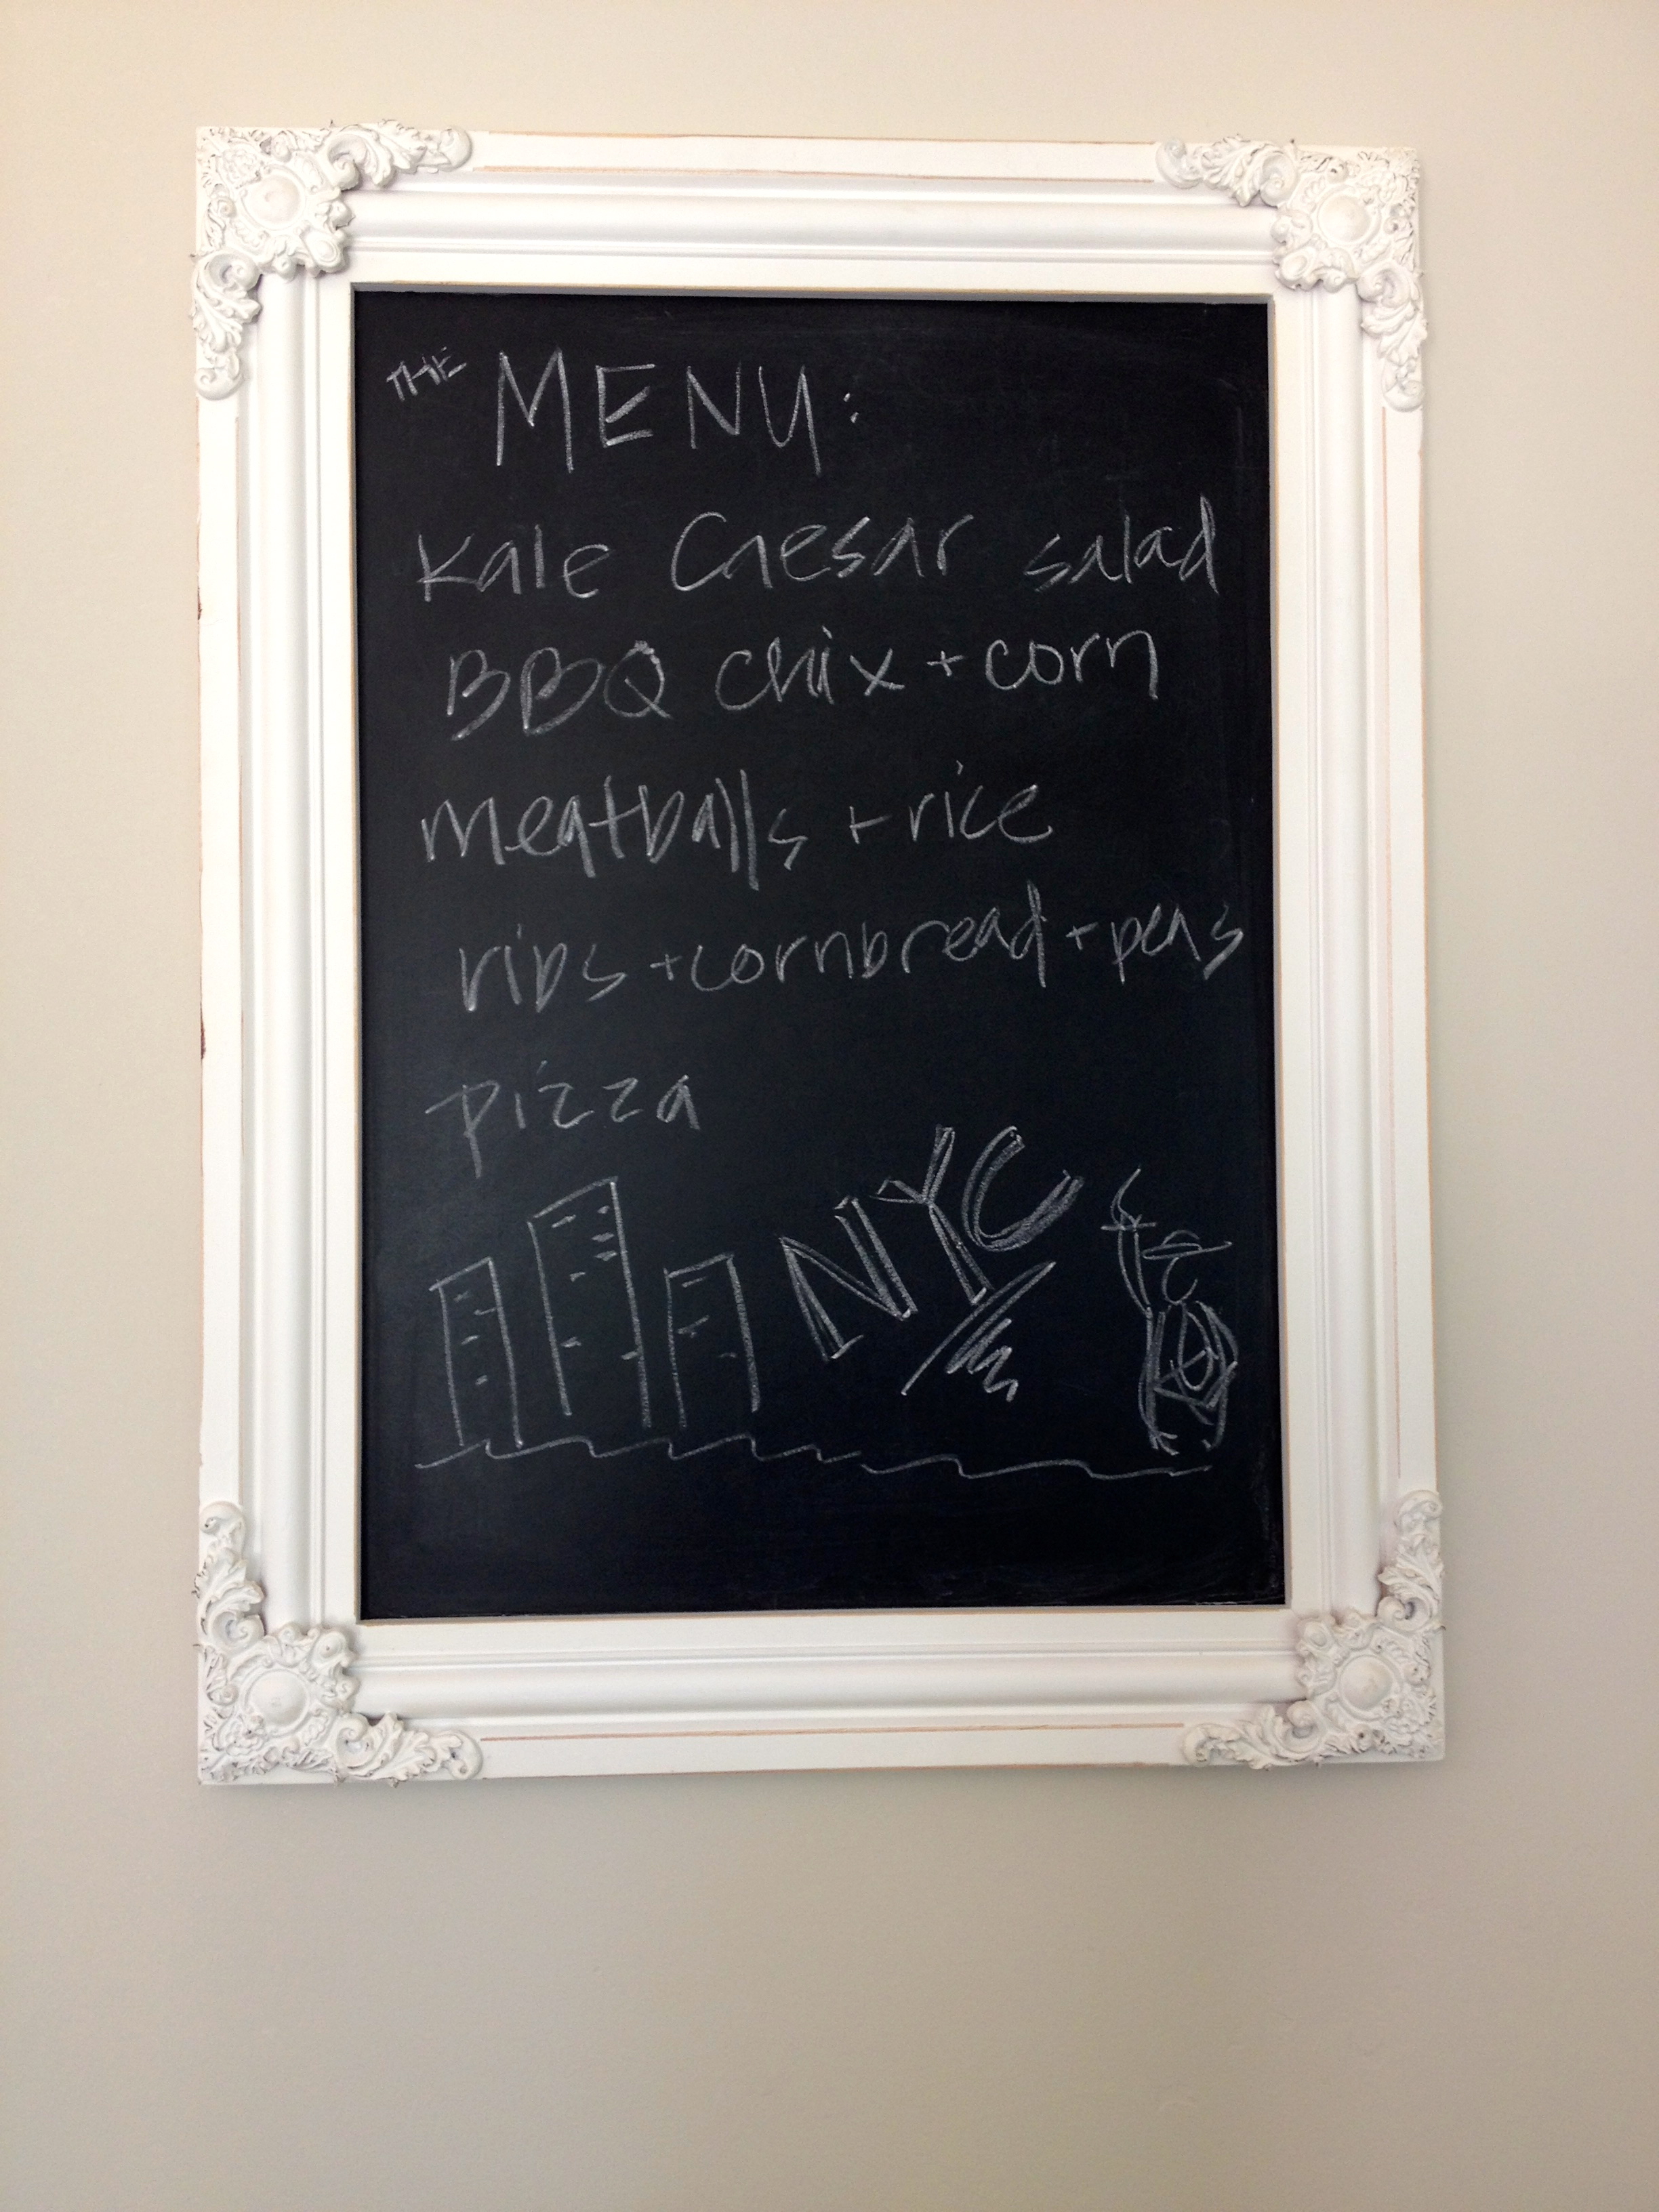 THE MENU:
Kale Caesar salad
BBQ chix + corn
meatballs + rice
ribs + cornbread + peas
pizza
NYC